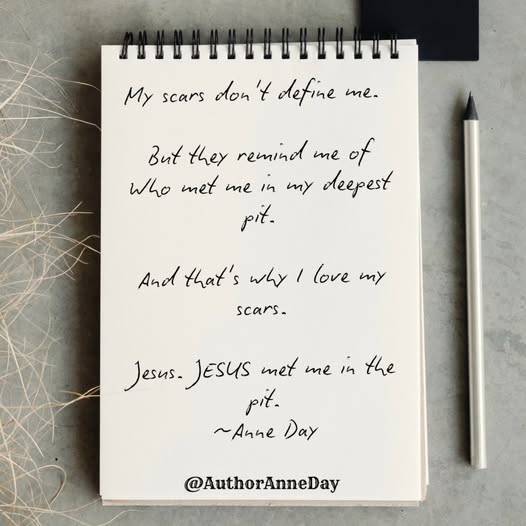 My scars don't define me.
But they remind me of
Who met me in my deepest
pit.
And that's why I love my
scars.
Jesus. JESUS met me in the
pit.
~Anne Day
@AuthorAnneDay